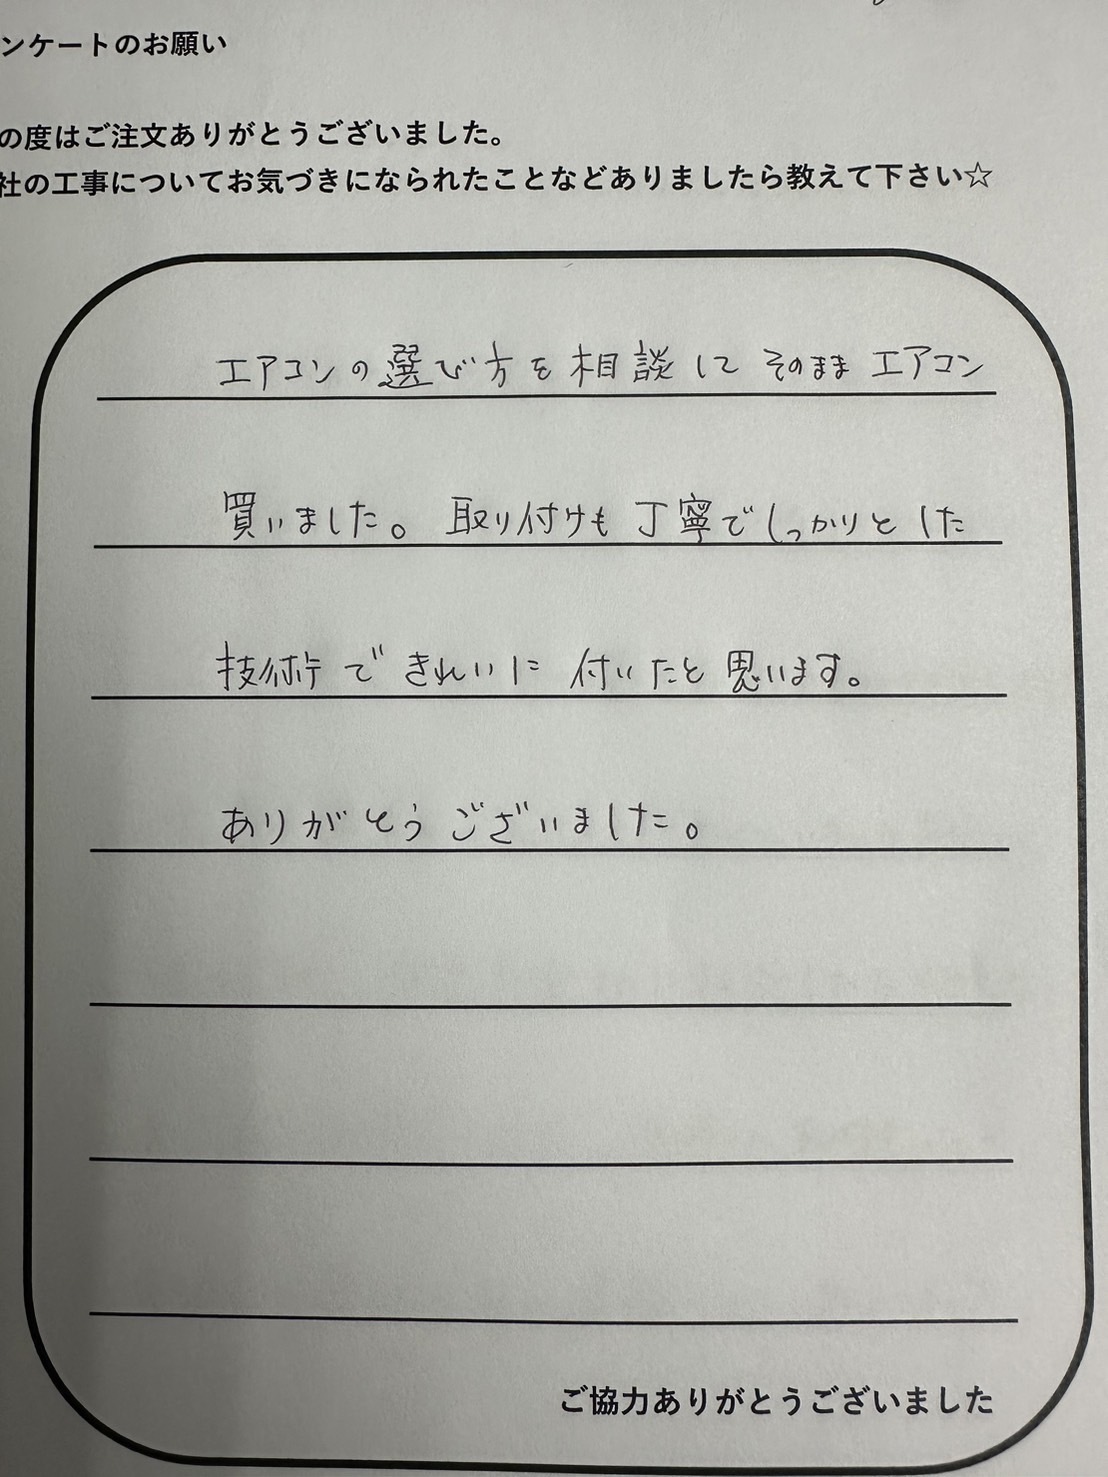 ンケートのお願い
の度はご注文ありがとうございました。
社の工事についてお気づきになられたことなどありましたら教えて下さい☆
エアコンの選び方を相談して そのまま エアコン
買いました。 取り付けも 丁寧でしっかりとした
技術で きれいに 付いたと 思います。
ありがとうございました。
ご協力ありがとうございました